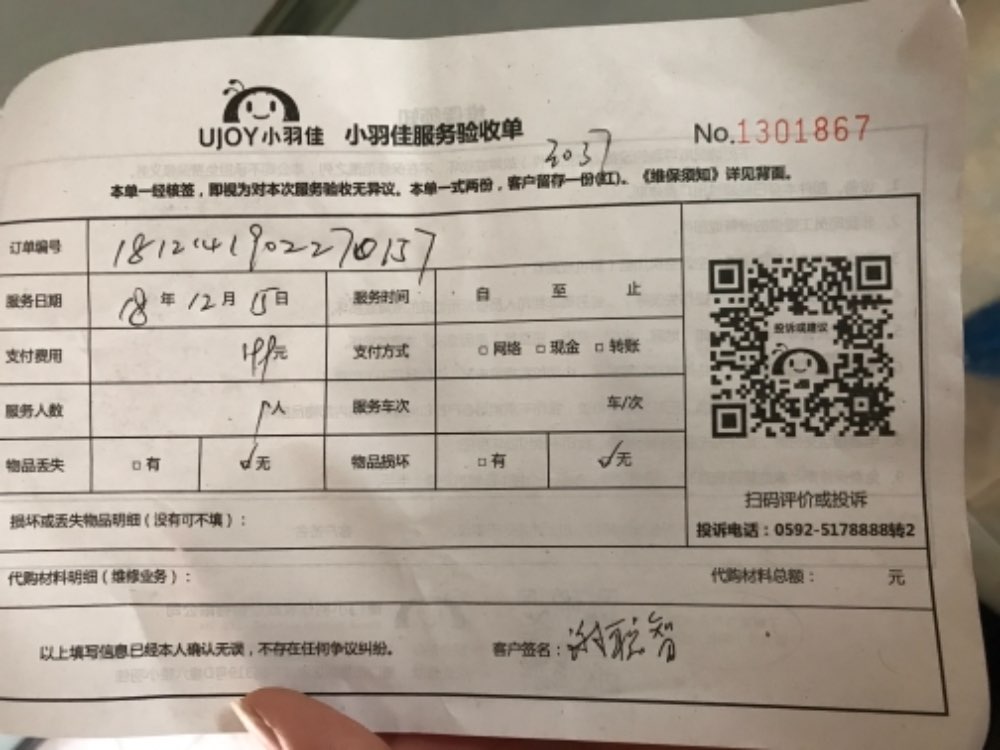 UJOY小羽佳 小羽佳服务验收单 No.1301867
3037
本单一经核签，即视为对本次服务验收无异议。本单一式两份，客户留存一份(红)。《维保须知》详见背面。
订单编号
服务日期 18年12月15日 服务时间 自 至 止
支付费用 元 支付方式 □网络 □现金 □转账
服务人数 1人 服务车次 车/次
物品丢失 □有 ☑无 物品损坏 □有 ☑无
投诉或建议
扫码评价或投诉
投诉电话：0592-5178888转2
损坏或丢失物品明细（没有可不填）：
代购材料明细（维修业务）： 代购材料总额： 元
以上填写信息已经本人确认无误，不存在任何争议纠纷。 客户签名：